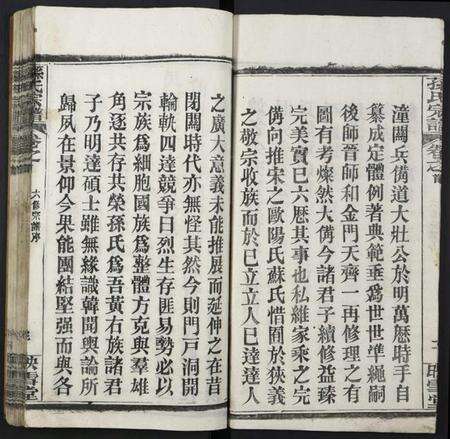 孫氏宗譜
卷之首
潼關兵備道大壯公於明萬曆時手自
纂成定體例著典範垂爲世世準繩嗣
後師晉師和金門天齊一再修理之有
圖有考燦然大備今諸君子續修益臻
完美實已六曆其事也私維家乘之完
備向推宋之歐陽氏蘇氏惜囿於狹義
之敬宗收族而於己立立人已達達人
之廣大意義未能推展而延伸之在昔
閉關時代亦無怪其然今則門戶洞開
輪軌四達競爭日烈生存匪易勢必以
宗族爲細胞國族爲整體方克與羣雄
角逐共存共榮孫氏爲吾黃右族諸君
子乃明達碩士雖無緣識韓聞輿論所
歸夙在景仰今果能團結堅强而與各
孫氏宗譜
卷之
六修宗譜序
映雪堂